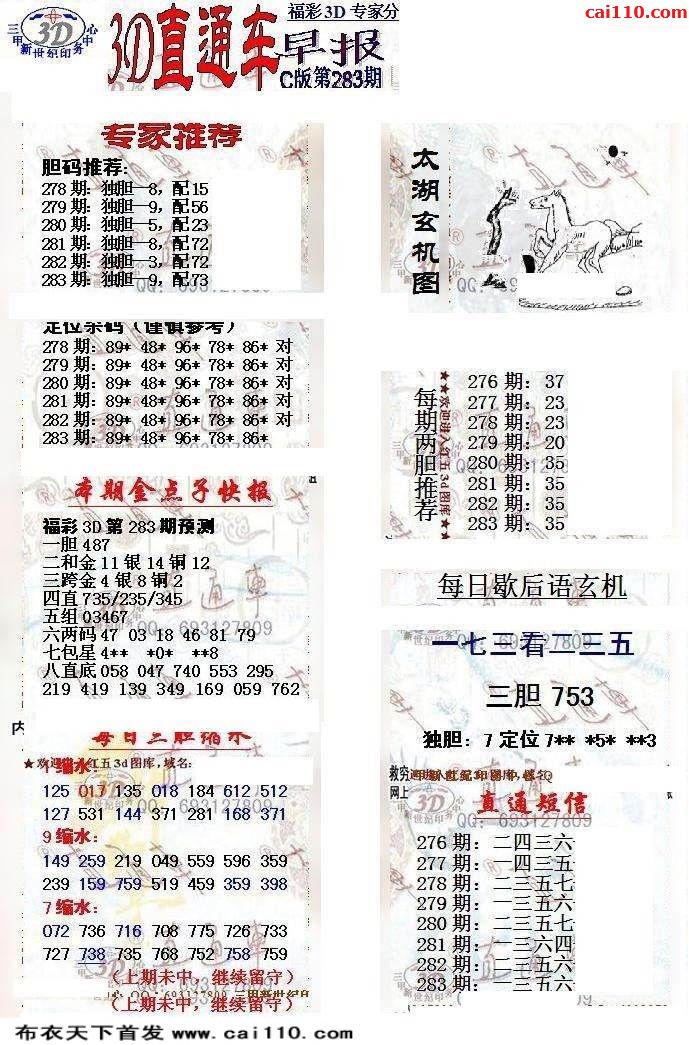 cai110.com
三甲新世纪印务中心
3D
3D直通车
福彩3D 专家分
早报
C版第283期
专家推荐
胆码推荐:
278 期: 独胆—8, 配15
279 期: 独胆—9, 配56
280 期: 独胆—5, 配23
281 期: 独胆—8, 配72
282 期: 独胆—3, 配72
283 期: 独胆—9, 配73
定位杀码（谨慎参考）
278 期: 89* 48* 96* 78* 86* 对
279 期: 89* 48* 96* 78* 86* 对
280 期: 89* 48* 96* 78* 86* 对
281 期: 89* 48* 96* 78* 86* 对
282 期: 89* 48* 96* 78* 86* 对
283 期: 89* 48* 96* 78* 86*
本期金点子快报
福彩 3D 第 283 期预测
一胆 487
二和金 11 银 14 铜 12
三跨金 4 银 8 铜 2
四直 735/235/345
五组 03467
六两码 47 03 18 46 81 79
七包星 4** *0* **8
八直底 058 047 740 553 295
219 419 139 349 169 059 762
内
每日三胆缩水
缩水:
125 017 135 018 184 612 512
127 531 144 371 281 168 371
9 缩水:
149 259 219 049 559 596 359
239 159 759 519 459 359 398
7 缩水:
072 736 716 708 775 726 733
727 738 735 768 752 758 759
（上期未中，继续留守）
（上期未中，继续留守）
太湖玄机图
每期两胆推荐
★★欢迎进入红五3d图库★★
276 期: 37
277 期: 23
278 期: 23
279 期: 20
280 期: 35
281 期: 35
282 期: 35
283 期: 35
每日歇后语玄机
一七三看二三五
三胆 753
独胆: 7 定位 7** *5* **3
救穷
网上
直通短信
QQ: 693127809
276 期: 二四三六
277 期: 一四三五
278 期: 二三五七
279 期: 一三五六
280 期: 二三五七
281 期: 一三六四
282 期: 二三五六
283 期: 一三五六
布衣天下首发 www.cai110.com